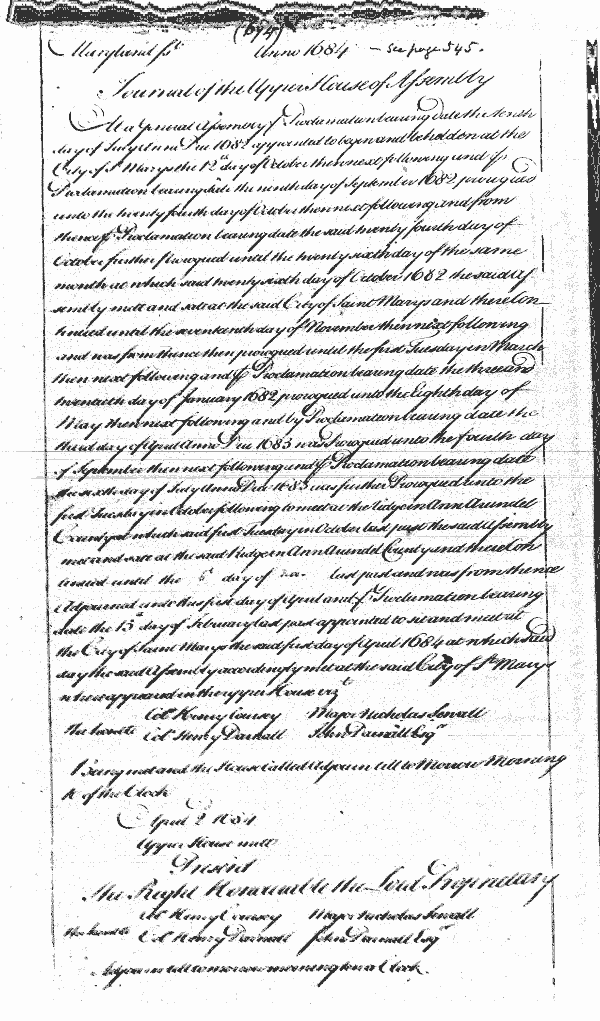 (674)
Maryland ss. Anno 1684 - See page 545.
Journal of the Upper House of Assembly
At a General Assembly p Proclamation bearing date the tenth
day of July Anno Dni 1682 appointed to begin and be holden at the
City of St Marys the 12th day of October then next following and p
Proclamation bearing date the ninth day of September 1682 prorogued
unto the twenty fourth day of October then next following and from
thence p Proclamation bearing date the said twenty fourth day of
October further prorogued until the twenty sixth day of the same
month at which said twenty sixth day of October 1682 the said As
sembly mett and sate at the said City of Saint Marys and there Con
tinued until the seventeenth day of November then next following
and was from thence then prorogued until the first Tuesday in March
then next following and p Proclamation bearing date the three and
twentieth day of January 1682 prorogued unto the Eighth day of
May then next following and by Proclamation bearing date the
third day of April Anno Dni 1683 was Prorogued unto the fourth day
of September then next following and p Proclamation bearing date
the sixth day of July Anno Dni 1683 was further Prorogued unto the
first Tuesday in October following to meet at the Ridge in Ann Arundel
County at which said first Tuesday in October last past the said Assembly
met and sate at the said Ridge in Ann Arundel County and there Con
tinued until the 6 day of last past and was from thence
Adjourned unto this first day of April and p Proclamation bearing
date the 15th day of February last past appointed to sit and meet at
the City of Saint Marys the said first day of April 1684 at which said
day the said Assembly accordingly met at the said City of St Marys
where appeared in the upper House vizt
Coll Henry Coursey Major Nicholas Sewall
The honble Coll Henry Darnall John Darnall Esqr
Being met and the House Called Adjourn till to Morrow Morning
of the Clock
April 2 1684
Upper House mett
Present
The Right Honourable the Lord Proprietary
Coll Henry Coursey Major Nicholas Sewall
The honble Coll Henry Darnall John Darnall Esqr
Adjourn till to morrow morning ten a Clock.